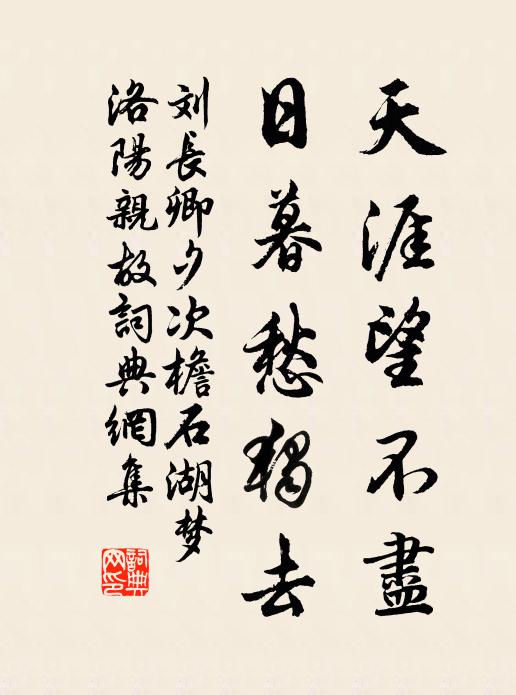 天涯望不盡
日暮愁獨去
刘長卿夕次檐石湖梦
洛陽親故詞典網集
詞典网印